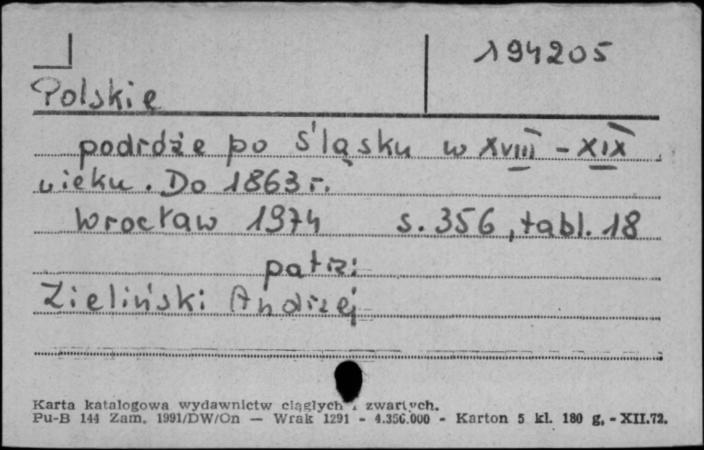 194205
Polskie
podróże po Śląsku w XVIII - XIX
wieku. Do 1863 r.
Wrocław 1974 s. 356, tabl. 18
patrz:
Zieliński Andrzej
Karta katalogowa wydawnictw ciągłych i zwartych.
Pu-B 144 Zam. 1991/DW/On — Wrak 1291 - 4.356.000 - Karton 5 kl. 180 g. - XII.72.